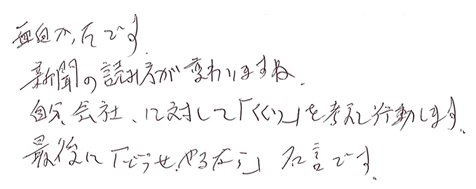 面白かったです
新聞の読み方が変わりますね.
自分、会社、に対して「くくり」を考え行動します.
最後に「どうせやるなら」名言です.